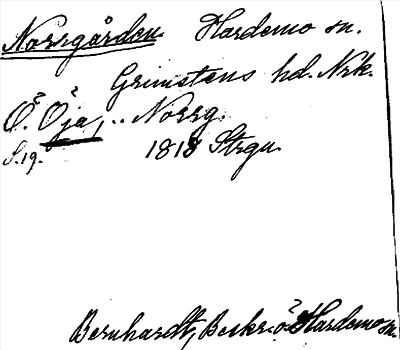 Norrgården. Hardemo sn.
Grimstens hd. Nrk.
Ö. Öja, .. Norrg.
S. 19. 1818 Strgn.
Bernhardt, Beskr. ö. Hardemo sn.